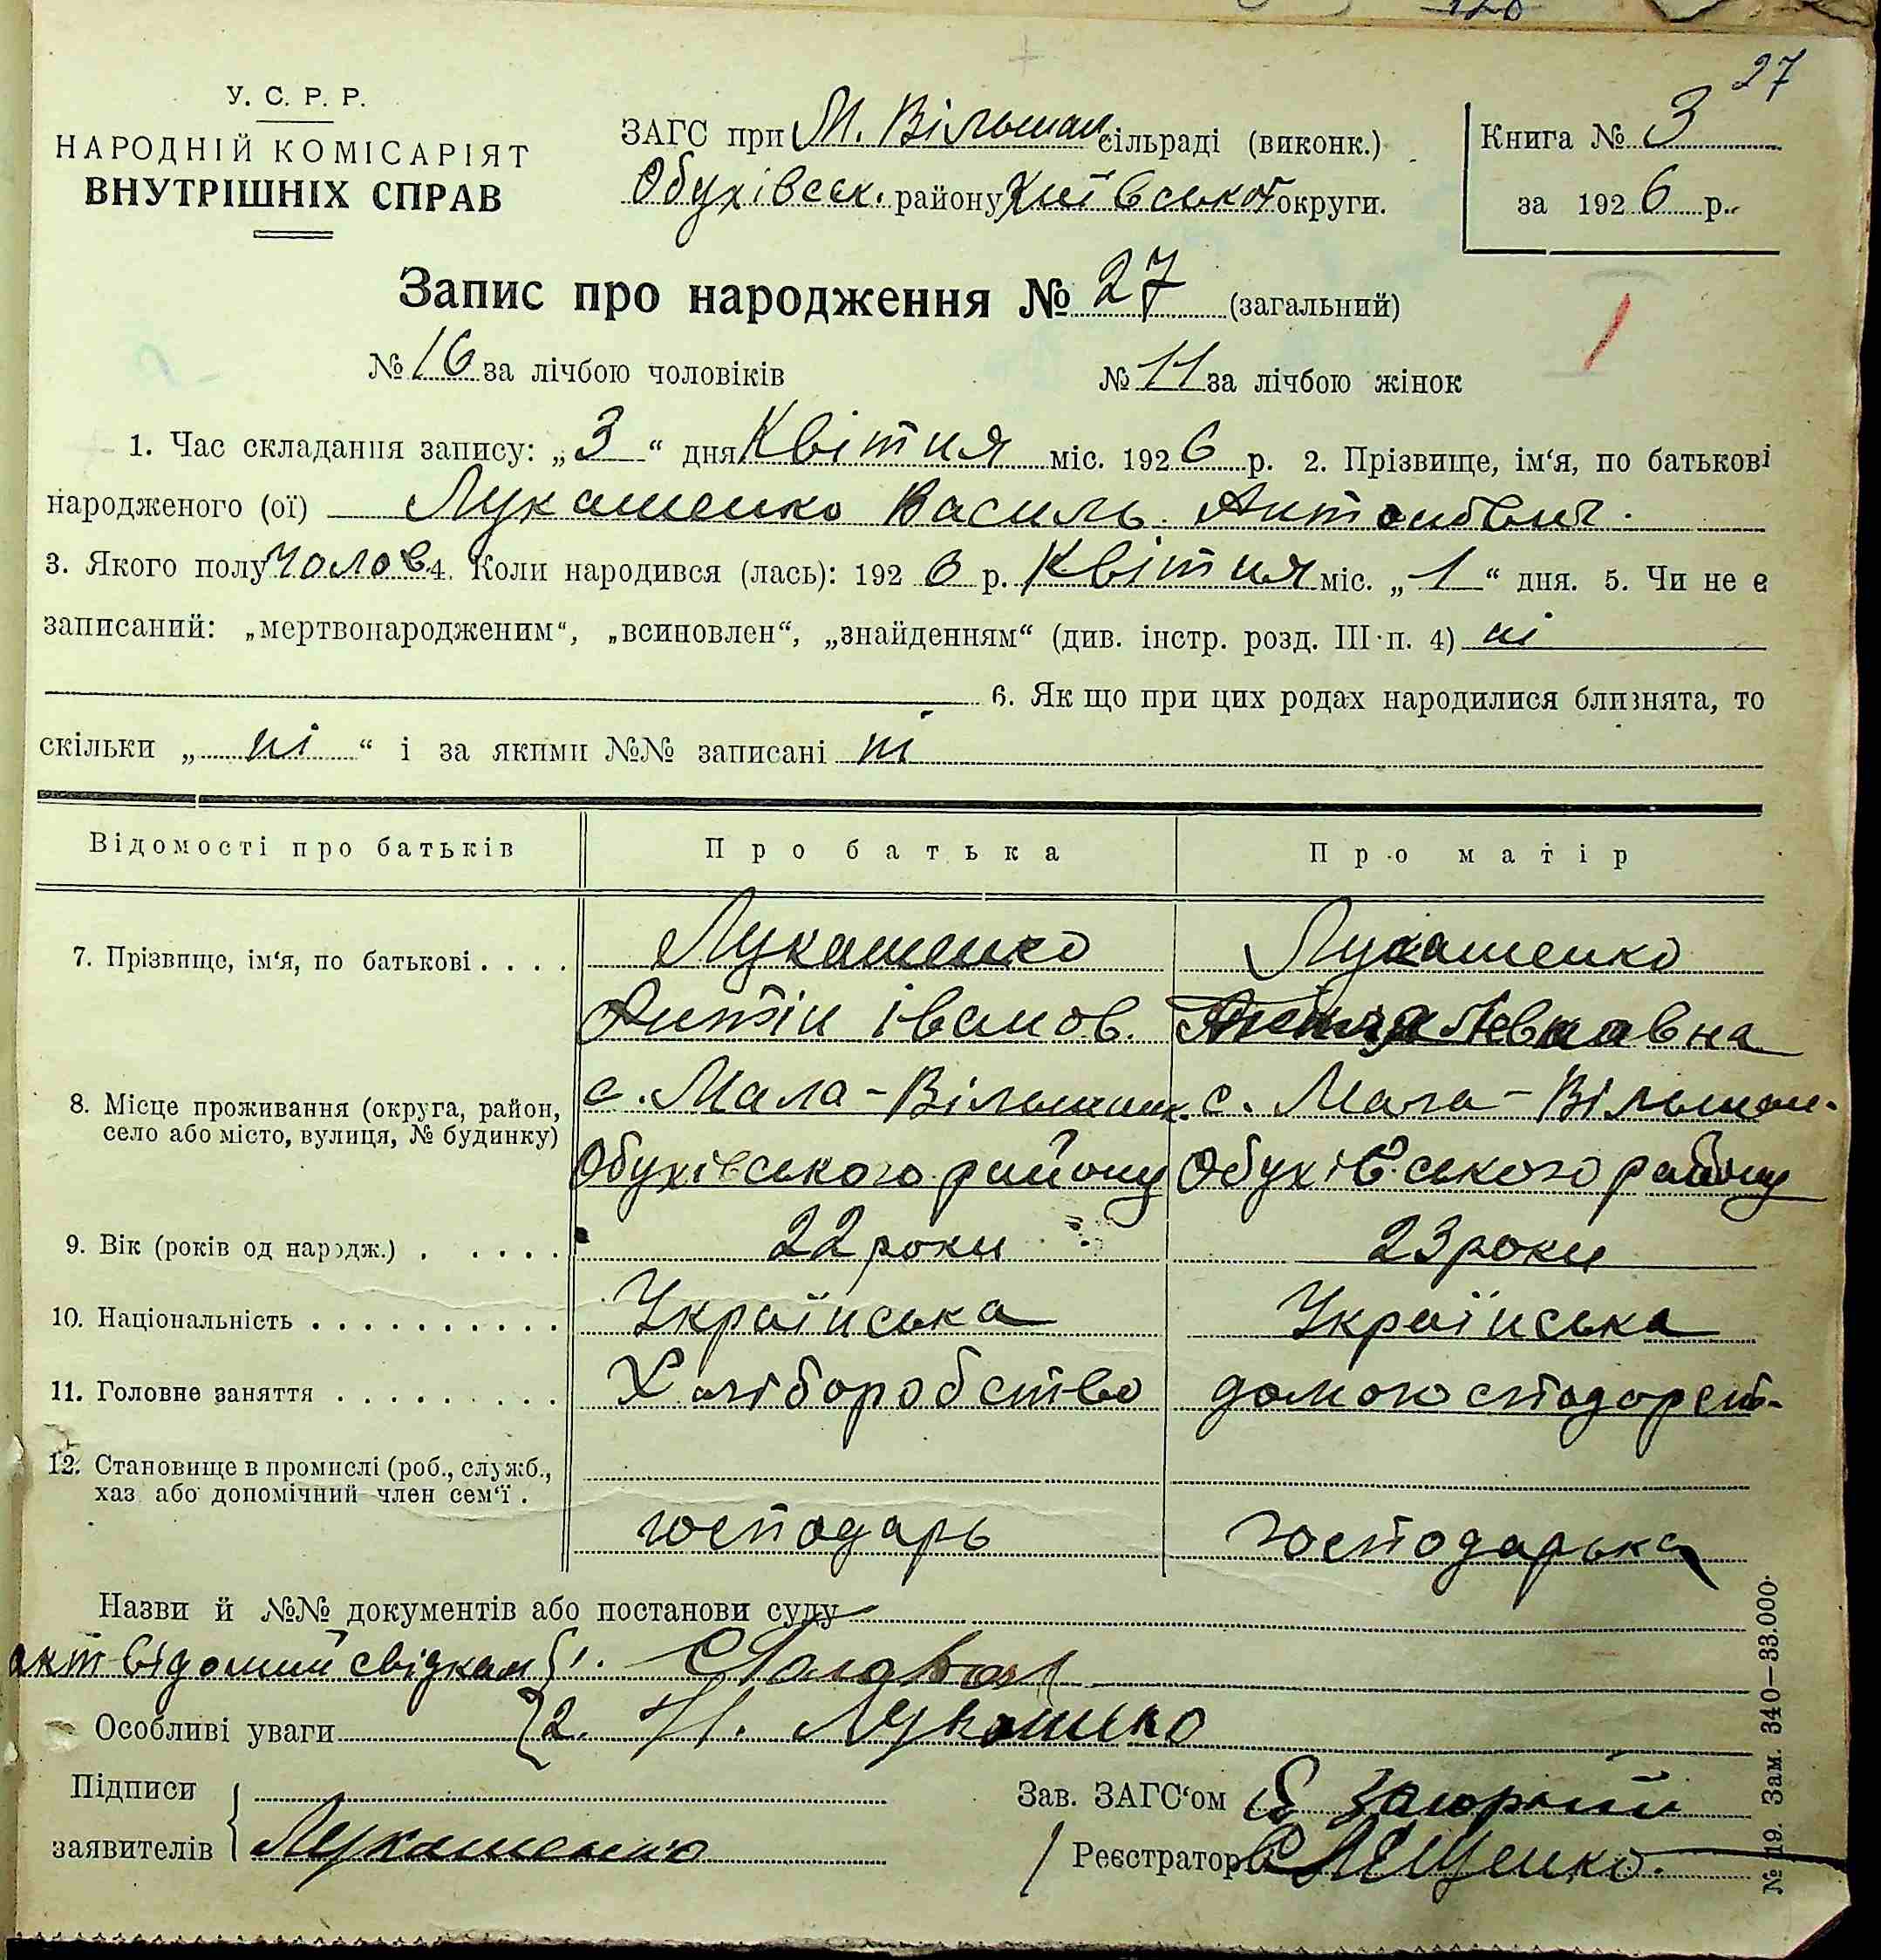 27
У. С. Р. Р.
НАРОДНІЙ КОМІСАРІЯТ
ВНУТРІШНІХ СПРАВ
ЗАГС при М. Вільшан. сільраді (виконк.)
Обухівськ. району Київської округи.
Книга № 3
за 1926 р.
Запис про народження № 27 (загальний)
№ 16 за лічбою чоловіків № 11 за лічбою жінок
1. Час складання запису: „3“ дня Квітня міс. 1926 р. 2. Прізвище, ім‘я, по батькові
народженого (ої) Лукашенко Василь Антонович.
3. Якого полу чолов. 4. Коли народився (лась): 1926 р. Квітня міс. „1“ дня. 5. Чи не є
записаний: „мертвонародженим“, „всиновлен“, „знайденням“ (див. інстр. розд. III п. 4) ні
6. Як що при цих родах народилися близнята, то
скільки „ні“ і за якими №№ записані ні
Відомості про батьків Про батька Про матір
7. Прізвище, ім‘я, по батькові Лукашенко Лукашенко
Антін Іванов.
8. Місце проживання (округа, район, с. Мала-Вільшанк. с. Мала-Вільшан-
село або місто, вулиця, № будинку)
Обухівського району Обухівського району
9. Вік (років од народж.) 22 роки 23 роки
10. Національність Українська Українська
11. Головне заняття Хліборобство домогосподарст-
12. Становище в промислі (роб., служб.,
хаз. або допомічний член сем‘ї.
господарь господарька
Назви й №№ документів або постанови суду
акт відомий свідкам 1.
Особливі уваги 2. Лукашенко
Підписи
заявителів Лукашенко
Зав. ЗАГС‘ом
Реєстратор
№ 19. Зам. 340—33.000.